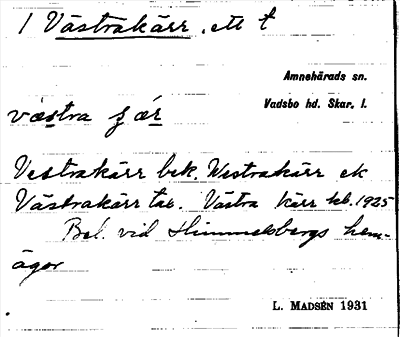 1 Västrakärr, ett t
Amnehärads sn.
Vadsbo hd. Skar. l.
västra
Vestrakärr bek. Westrakärr ek
Västrakärr tax. Västra Kärr kb. 1925
Bel. vid Himmelsbergs hem-
ägor
L. MADSÉN 1931